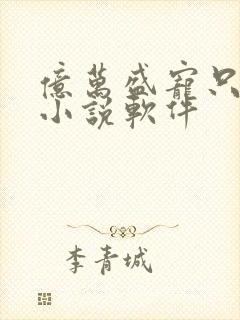 億萬盛寵只
小說軟件
李青城